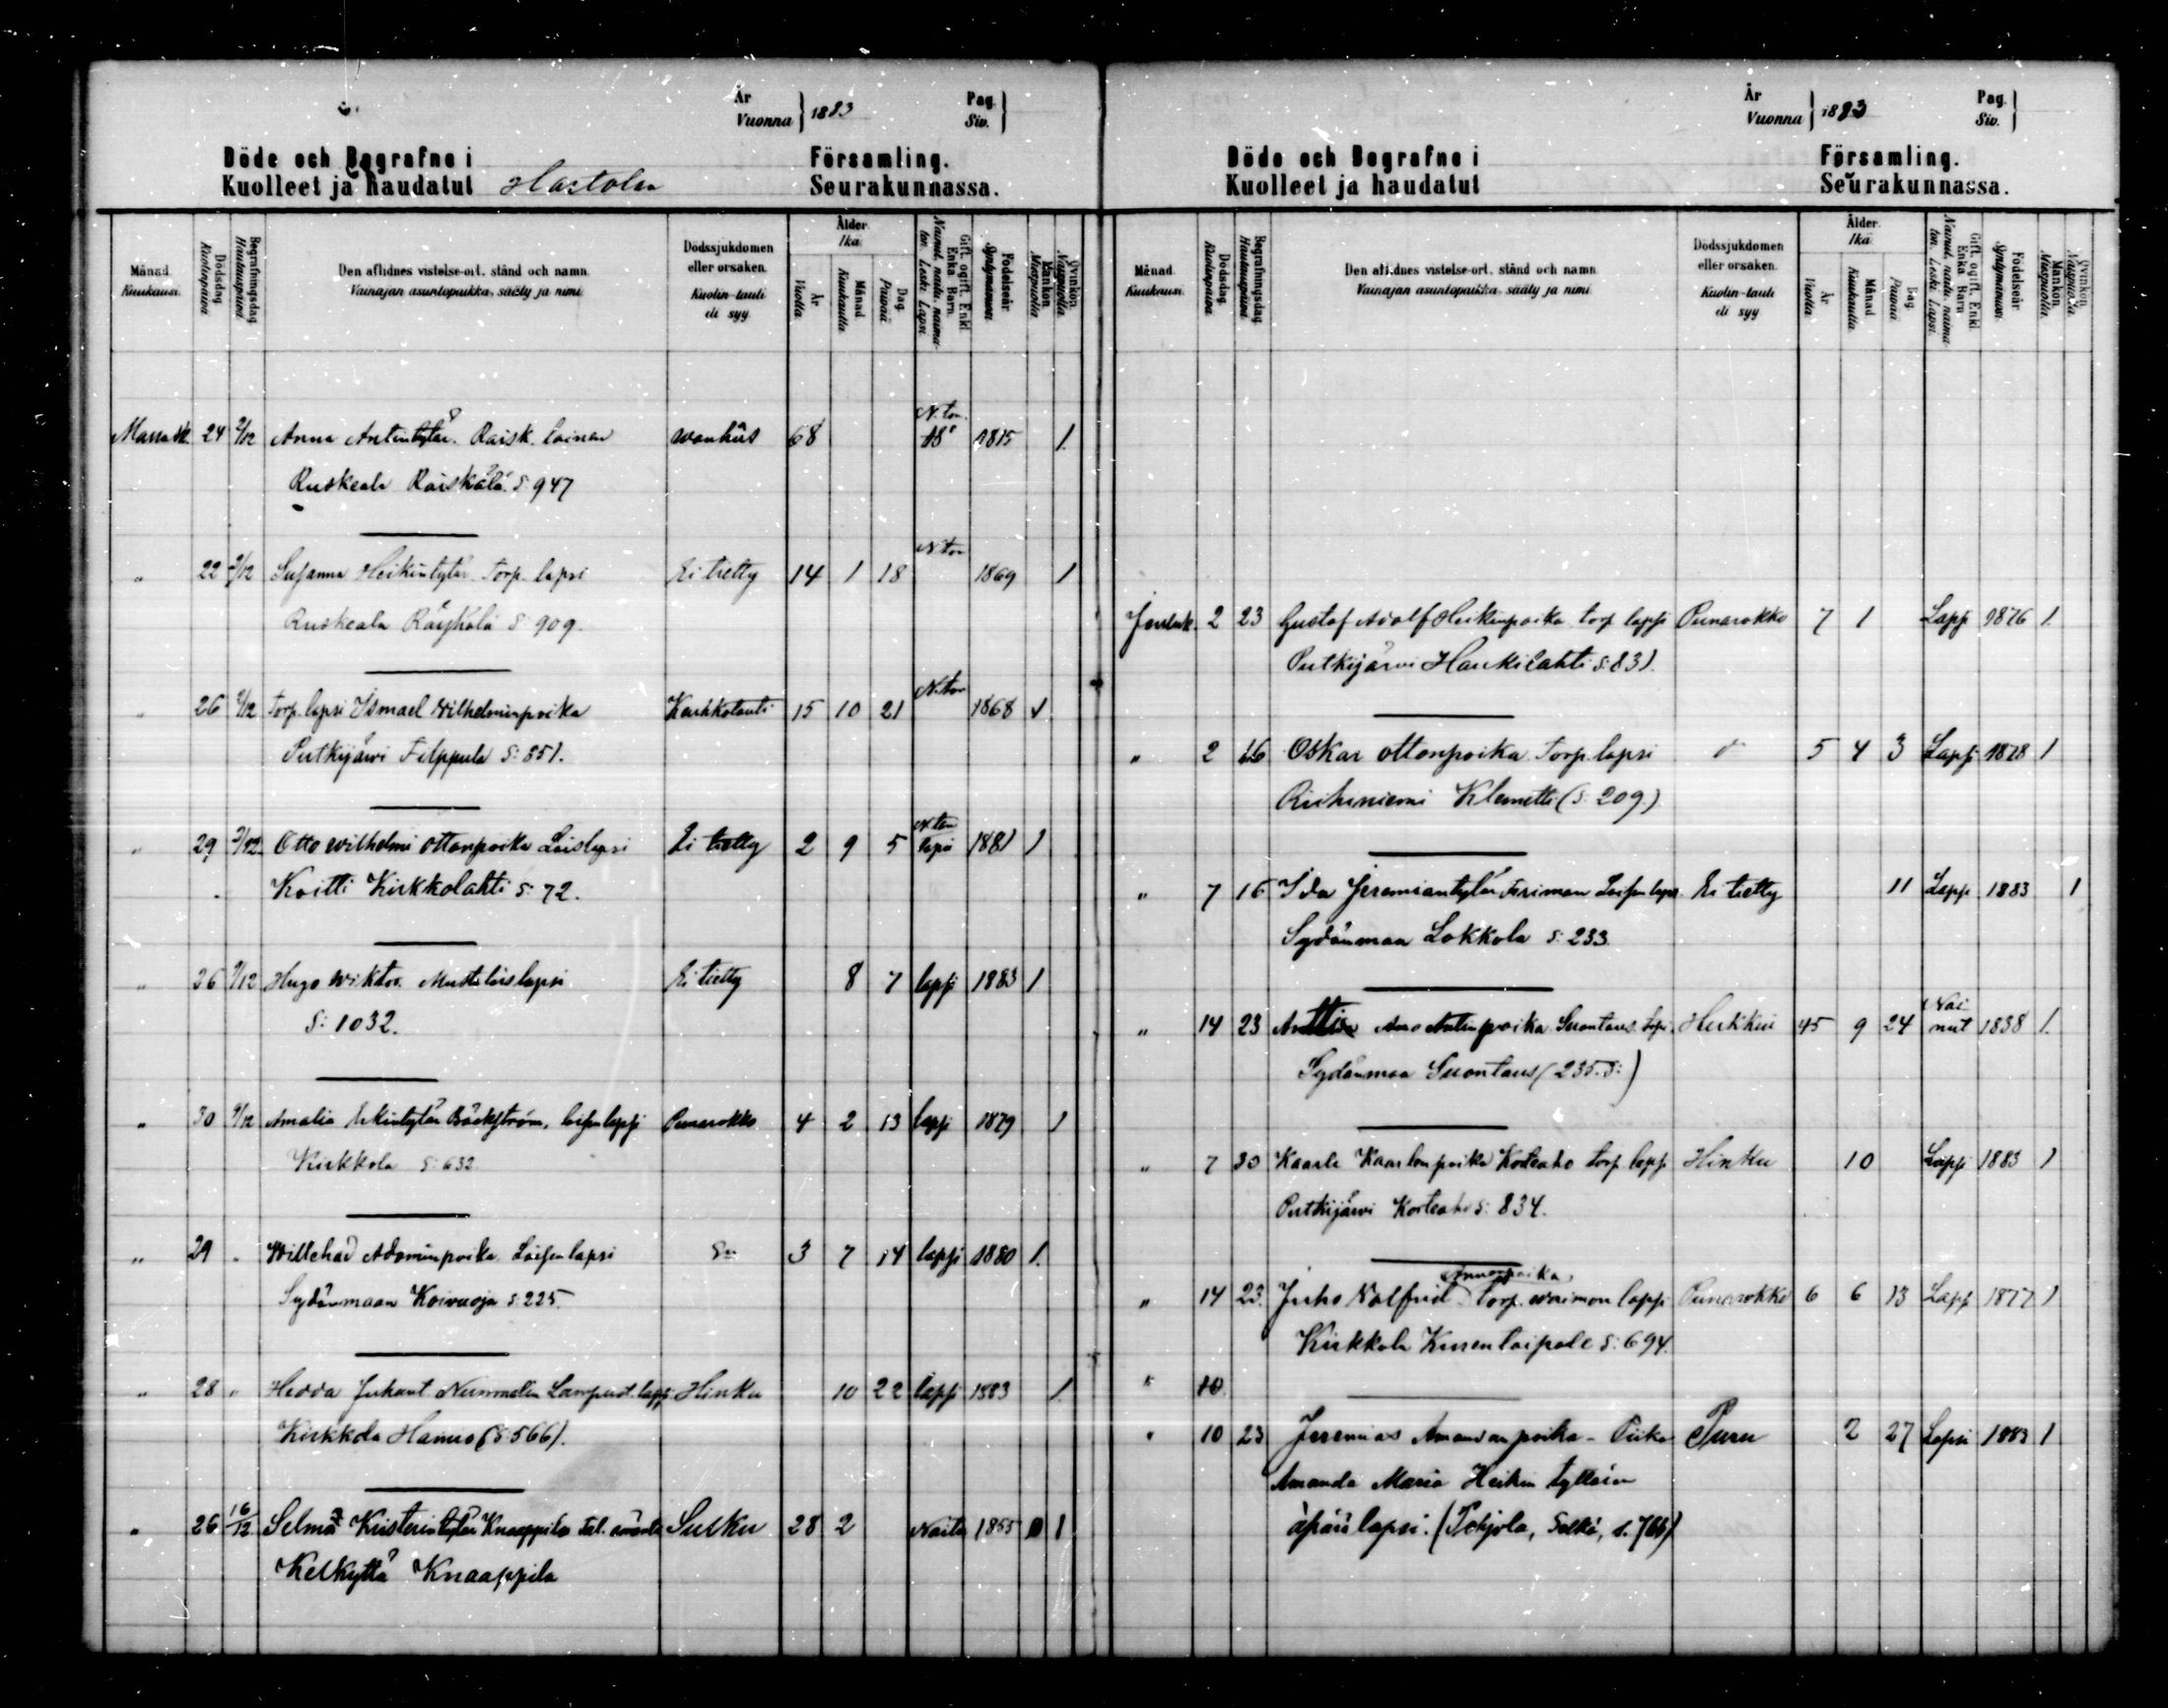 År
Vuonna } 1883
Pag.
Siv.
Döde och Begrafne i Församling.
Kuolleet ja haudatut Hartolan Seurakunnassa.
Månad. Kuukausi.
Dödsdag. Kuolinpäivä
Begrafningsdag Hautauspäivä
Den aflidnes vistelse-ort, stånd och namn.
Vainajan asuntopaikka, sääty ja nimi
Dödssjukdomen eller orsaken.
Kuolin-tauti eli syy
Ålder. Ikä.
År Vuotta
Månad Kuukautta
Dag. Päivää
Gift, ogift, Enkl. Enka Barn.
Nainut, naitu, naimaton. Leski. Lapsi.
Födelseår Syntymävuosi
Mankön. Miespuolta
Qvinkön. Naispuolta.
Marrask. 24 2/12 Anna Antintytär. Raisk. loinen wanhus 68 N. ton. 1815 1
Ruskeala Raiskälä S. 947
" 22 2/12 Susanna Heikintytär Torp. lapsi Ei tietty 14 1 18 N. ton 1869 1
Ruskeala Räyhälä S. 909.
" 26 2/12 Torp. lapsi Ismael Wilhelminpoika Keuhkotauti 15 10 21 N. ton 1868 1
Putkijärvi Filppula S: 851.
" 29 2/12 Otto Wilhelmi Ottonpoika Loislapsi Ei tietty 2 9 5 N. ton lapsi 1881 1
Koitti Kirkkolahti S: 72.
" 26 9/12 Hugo Wiktor. Loislapsi Ei tietty 8 7 lapsi 1883 1
S: 1032.
" 30 9/12 Amalia Erkintytär Bäckström, loisen lapsi Punarokko 4 2 13 lapsi 1879 1
Kirkkola S: 632
" 29 " Willehad Adaminpoika Loisen lapsi 3 7 14 lapsi 1880 1
Sydänmaan Koivuoja S. 225.
" 28 " Hedda Juhant Nummelin Lampuot. lapsi Hinku 10 22 lapsi 1883 1
Kirkkola (S. 566).
" 26 16/12 Selma Kristerintytär Knaappila Tal. Suku 28 2 Naitu 1855 1
Kelkyttä Knaappila
År
Vuonna } 1883
Pag.
Siv.
Döde och Begrafne i Församling.
Kuolleet ja haudatut Seurakunnassa.
Månad. Kuukausi.
Dödsdag. Kuolinpäivä
Begrafningsdag Hautauspäivä
Den aflidnes vistelse-ort, stånd och namn.
Vainajan asuntopaikka, sääty ja nimi
Dödssjukdomen eller orsaken.
Kuolin-tauti eli syy
Ålder. Ikä.
År Vuotta
Månad Kuukautta
Dag. Päivää
Gift, ogift, Enkl. Enka Barn
Nainut, naitu, naimaton. Leski. Lapsi.
Födelseår Syntymävuosi.
Mankön. Miespuolta.
Qvinkön. Naispuolta.
Jouluk. 2 23 Gustaf Adolf Heikinpoika torp lapsi Punarokko 7 1 Lapsi 1876 1
Putkijärvi Haukilahti S: 831.
" 2 16 Oskar Ottonpoika Torp. lapsi 5 4 3 Lapsi 1878 1
Riihiniemi Klemetti (S: 209.)
" 7 16 Ida Jeremiantytär Loisen laps Ei tietty 11 Lapsi 1883 1
Sydänmaa Lokkola S: 233.
" 14 23 Antinpoika Suontaus Herkkui 45 9 24 Nainut 1838 1
Sydänmaa Suontaus (235. S:)
" 7 30 Kaarle Kaarlonpoika Korteaho torp. laps Hinku 10 Lapsi 1883 1
Putkijärvi Korteaho S: 834.
Annanpoika
" 14 23. Juho Walfrid torp. waimon lapsi Punarokko 6 6 13 Laps 1877 1
Kirkkola Kusenlaipale S: 694.
" 10
" 10 23 Jeremias Amandanpoika - Piika Puru 2 27 Lapsi 1883 1
Amanda Maria Heikin tyttären
äpärä lapsi. (Pohjola, S. 766)